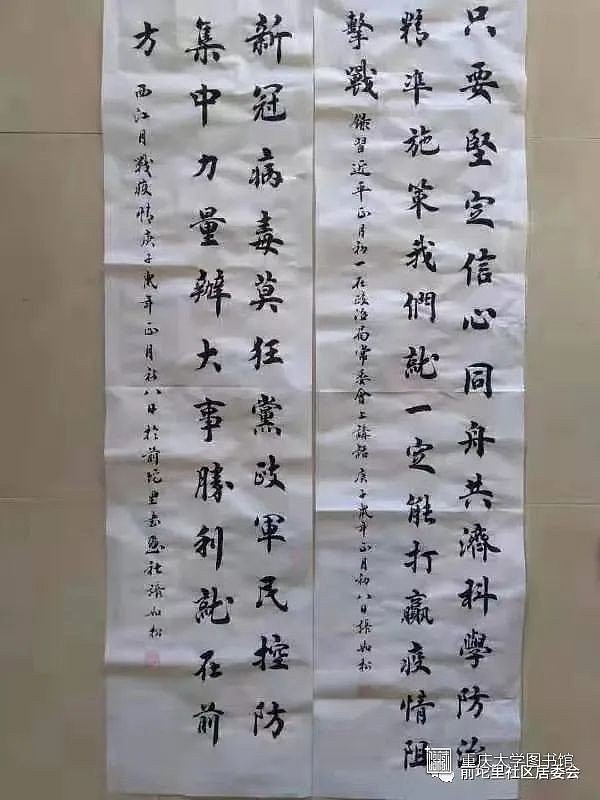 只要堅定信心同舟共濟科學防治
精準施策我們就一定能打贏疫情阻
擊戰 錄習近平正月初一在政治局常委會上講話 庚子鼠年正月初八日張如松
新冠病毒莫狂黨政軍民控防
集中力量辦大事勝利就在前
方 西江月戰疫情庚子鼠年正月初八日於前坨里書画社張如松
重庆大学图书馆
前坨里社区居委会